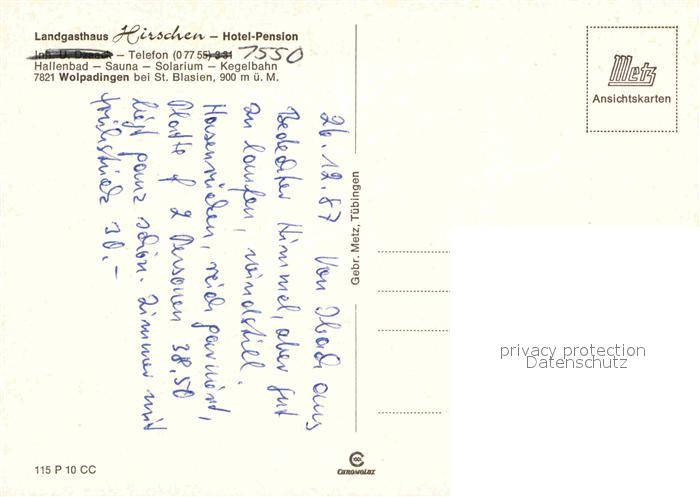 Landgasthaus Hirschen – Hotel-Pension
Inh. U. Dzaack – Telefon (0 77 55) 331 7550
Hallenbad – Sauna – Solarium – Kegelbahn
7821 Wolpadingen bei St. Blasien, 900 m ü. M.
Metz
Ansichtskarten
26.12.87 Von Ibach aus
Bedeckter Himmel, aber gut
zu laufen, windstill.
Hasenrücken, reich garniert,
Platte f 2 Personen 38,50
liegt ganz schön. Zimmer mit
Frühstück 30.–
Gebr. Metz, Tübingen
privacy protection
Datenschutz
115 P 10 CC
CHROMOLUX